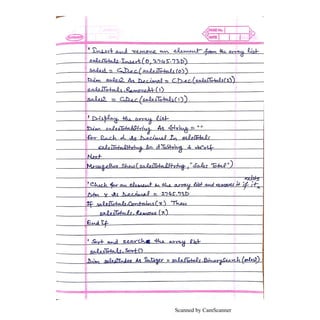 ' Insert and remove an element from the array list
salesTotals.Insert(0, 2745.73D)
sales1 = CDec(salesTotals(0))
Dim sales2 As Decimal = CDec(salesTotals(3))
salesTotals.RemoveAt(1)
sales2 = CDec(salesTotals(1))
' Display the array list
Dim salesTotalsString As String = ""
For Each d As Decimal In salesTotals
salesTotalsString &= d.ToString & vbCrLf
Next
MessageBox.Show(salesTotalsString, "Sales Totals")
' Check for an element in the array list and removes it if it exists
Dim x As Decimal = 2745.73D
If salesTotals.Contains(x) Then
salesTotals.Remove(x)
End If
' Sort and search the array list
salesTotals.Sort()
Dim salesIndex As Integer = salesTotals.BinarySearch(sales2)
Scanned by CamScanner